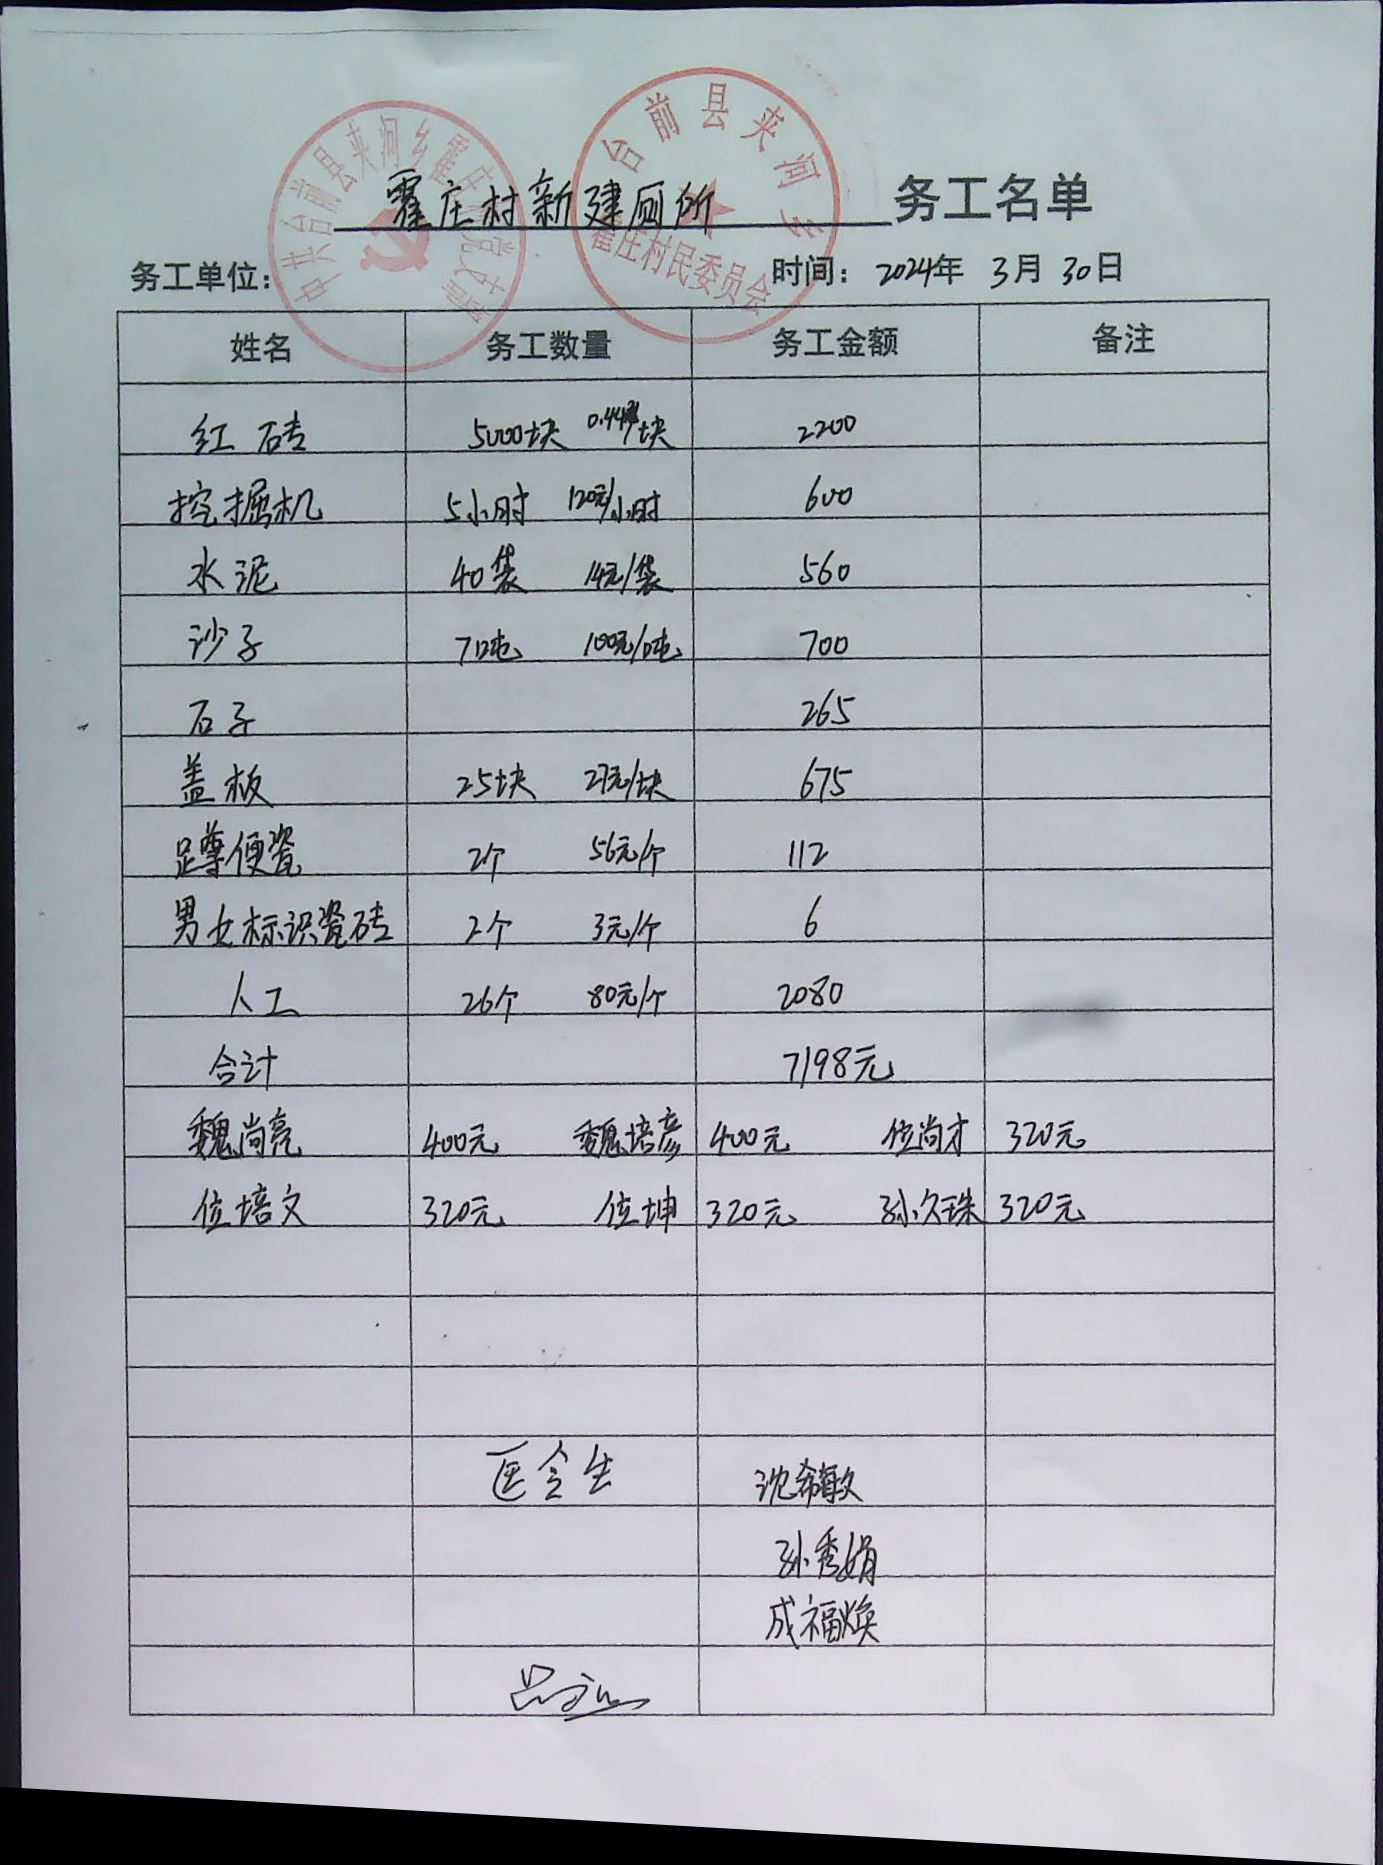 中共台前县夹河乡霍庄村党支部委员会
台前县夹河乡
霍庄村民委员会
霍庄村新建厕所 务工名单
务工单位： 时间：2024年 3月 30日
姓名 务工数量 务工金额 备注
红砖 5000块 0.44元/块 2200
挖掘机 5小时 120元/小时 600
水泥 40袋 14元/袋 560
沙子 7吨 100元/吨 700
石子 265
盖板 25块 27元/块 675
蹲便瓷 2个 56元/个 112
男女标识瓷砖 2个 3元/个 6
人工 26个 80元/个 2080
合计 7198元
魏尚亮 400元 魏培彦 400元 位尚才 320元
位培文 320元 位坤 320元 孙久珠 320元
沈希敏
孙秀娟
成福焕